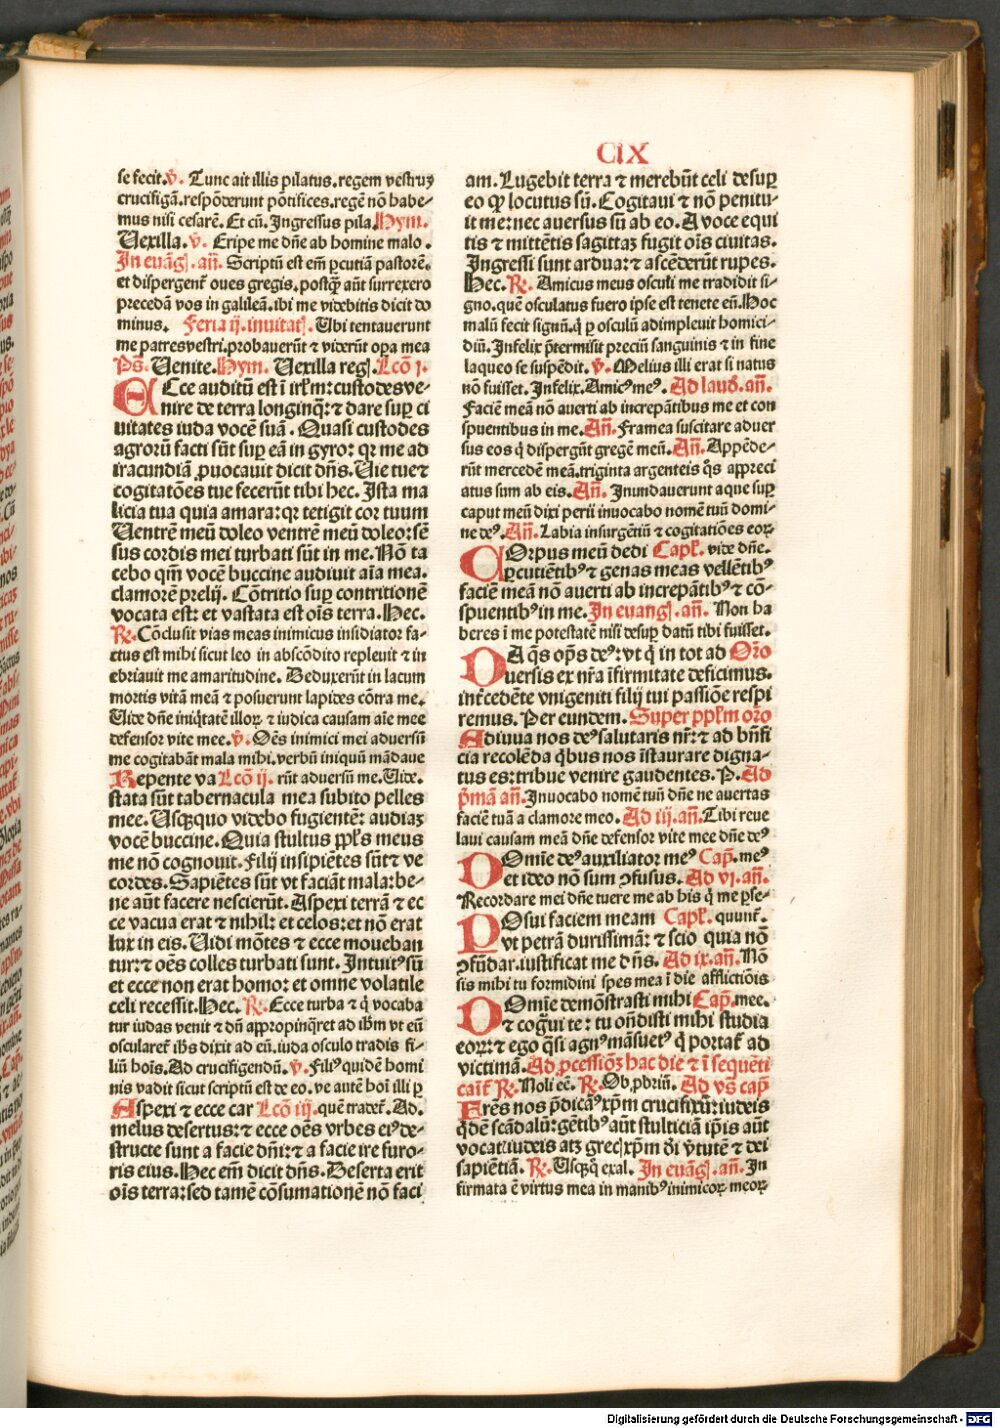 CIX
se fecit. ℣. Tunc ait illis pilatus. regem vestrꝫ
crucifigā. respōderunt pōtifices. regē nō habe-
mus nisi cesarē. Et cū. Ingressus pila. Hym.
Vexilla. ℣. Eripe me dñe ab homine malo.
In euāg. añ. Scriptū est em̄ ꝑcutiā pastorē.
et dispergent̄ oues gregis. postqꝫ aūt surrexero
precedā vos in galileā. ibi me videbitis dicit do
minus. Feria ij. inuitat. Vbi tentauerunt
me patres vestri. probauerūt ⁊ viderūt oꝑa mea
Ps. Venite. Hym. Vexilla reg. Lcō j.
ECce auditū est ī irlꝫm: custodes ve-
nire de terra longinq̄: ⁊ dare suꝑ ci
uitates iuda vocē suā. Quasi custodes
agrorū facti sūt suꝑ eā in gyro: qꝛ me ad
iracundiā ꝓuocauit dicit dñs. Vie tue ⁊
cogitatōes tue fecerūt tibi hec. Ista ma
licia tua quia amara: qꝛ tetigit cor tuum
Ventrē meū doleo ventrē meū doleo: sē
sus cordis mei turbati sūt in me. Nō ta
cebo qm̄ vocē buccine audiuit aīa mea.
clamorē prelij. Cōtritio suꝑ contritionē
vocata est: et vastata est oīs terra. Hec.
℟. Cōclusit vias meas inimicus insidiator fa-
ctus est mihi sicut leo in abscōdito repleuit ⁊ in
ebriauit me amaritudine. Deduxerūt in lacum
mortis vitā meā ⁊ posuerunt lapides cōtra me.
Vide dñe iniq̄tatē illoꝝ ⁊ iudica causam aīe mee
defensor vite mee. ℣. Oēs inimici mei aduersū
me cogitabāt mala mihi. verbū iniquū mādaue
Repente va Lcō ij. rūt aduersū me. Vide.
stata sūt tabernacula mea subito pelles
mee. Vsqꝫquo videbo fugientē: audiaꝫ
vocē buccine. Quia stultus ppl̄s meus
me nō cognouit. Filij insipiētes sūt ⁊ ve
cordes. Sapiētes sūt vt faciāt mala: be-
ne aūt facere nescierūt. Aspexi terrā ⁊ ec
ce vacua erat ⁊ nihil: et celos: et nō erat
lux in eis. Vidi mōtes ⁊ ecce moueban
tur: ⁊ oēs colles turbati sunt. Intuitꝰ sū
et ecce non erat homo: et omne volatile
celi recessit. Hec. ℟. Ecce turba ⁊ q̄ vocaba
tur iudas venit ⁊ dū appropinq̄ret ad ihm̄ vt eū
oscularet̄ ihs̄ dixit ad eū. iuda osculo tradis fi-
liū hoīs. Ad crucifigendū. ℣. Filiꝰ quidē homi
nis vadit sicut scriptū est de eo. ve autē hoī illi ꝑ
Aspexi ⁊ ecce car Lcō iij. quē tradet̄. Ad.
melus desertus: ⁊ ecce oēs vrbes eiꝰ de-
structe sunt a facie dn̄i: ⁊ a facie ire furo-
ris eius. Hec em̄ dicit dñs. Deserta erit
oīs terra: sed tamē cōsumationē nō faci
am. Lugebit terra ⁊ merebūt celi desuꝑ
eo ꝙ locutus sū. Cogitaui ⁊ nō penitu-
it me: nec auersus sū ab eo. A voce equi
tis ⁊ mittētis sagittaꝫ fugit oīs ciuitas.
Ingressi sunt ardua: ⁊ ascēderūt rupes.
Hec. ℟. Amicus meus osculi me tradidit si-
gno. quē osculatus fuero ipse est tenete eū. Hoc
malū fecit signū. q̄ ꝑ osculū adimpleuit homici-
diū. Infelix p̄termisit preciū sanguinis ⁊ in fine
laqueo se suspēdit. ℣. Melius illi erat si natus
nō fuisset. Infelix. Amicꝰ meꝰ. Ad laud. añ.
Faciē meā nō auerti ab increpātibus me et con
spuentibus in me. Añ. Framea suscitare aduer
sus eos q̄ dispergūt gregē meū. Añ. Appēde-
rūt mercedē meā. triginta argenteis q̄s appreci
atus sum ab eis. Añ. Inundauerunt aque suꝑ
caput meū dixi perii inuocabo nomē tuū domi-
ne deꝰ. Añ. Labia insurgētiū ⁊ cogitatiōes eoꝝ
COrpus meū dedi Capl̄. vide dñe.
ꝑcutiētibꝰ ⁊ genas meas vellētibꝰ
faciē meā nō auerti ab increpātibꝰ ⁊ cō-
spuentibꝰ in me. In euang. añ. Non ha
beres ī me potestatē nisi desuꝑ datū tibi fuisset.
DA q̄s op̄s deꝰ: vt q̄ in tot ad Orō
uersis ex nr̄a īfirmitate deficimus.
intc̄edēte vnigeniti filij tui passiōe respi
remus. Per eundem. Super ppl̄m orō
Adiuua nos deꝰ salutaris nr̄: ⁊ ad bn̄fi
cia recolēda q̄bus nos īstaurare digna-
tus es: tribue venire gaudentes. P. Ad
p̄mā añ. Inuocabo nomē tuū dñe ne auertas
faciē tuā a clamore meo. Ad iij. añ. Tibi reue
laui causam meā dñe defensor vite mee dñe deꝰ
DOmīe deꝰ auxiliator meꝰ Cap̄. meꝰ
et ideo nō sum ꝯfusus. Ad vi. añ.
Recordare mei dñe tuere me ab his q̄ me ꝑse-
POsui faciem meam Capl̄. quunt̄.
vt petrā durissimā: ⁊ scio quia nō
ꝯfūdar. iustificat me dñs. Ad ix. añ. Nō
sis mihi tu formidini spes mea ī die afflictiōis
DOmīe demōstrasti mihi Cap̄. mee.
⁊ coḡui te: tu on̄disti mihi studia
eoꝝ: ⁊ ego q̄si agnꝰ māsuetꝰ q̄ portat̄ ad
victimā. Ad ꝓcessiōꝫ hac die ⁊ ī sequēti
cāīt̄ ℟. Noli eē. ℟. Ob ꝓbriū. Ad vs̄ cap̄
Frēs nos p̄dicaꝰ xp̄m crucifixū: iudeis
q̄dē scādalū: gētibꝰ aūt stulticiā ip̄is aūt
vocat̄ iudeis atꝫ grec̄ xp̄m di v̄tutē ⁊ dei
sapiētiā. ℟. Vsqꝫq̄ exal. In euāg. añ. In
firmata ē virtus mea in manibꝰ inimicoꝝ meoꝝ
Digitalisierung gefördert durch die Deutsche Forschungsgemeinschaft - DFG